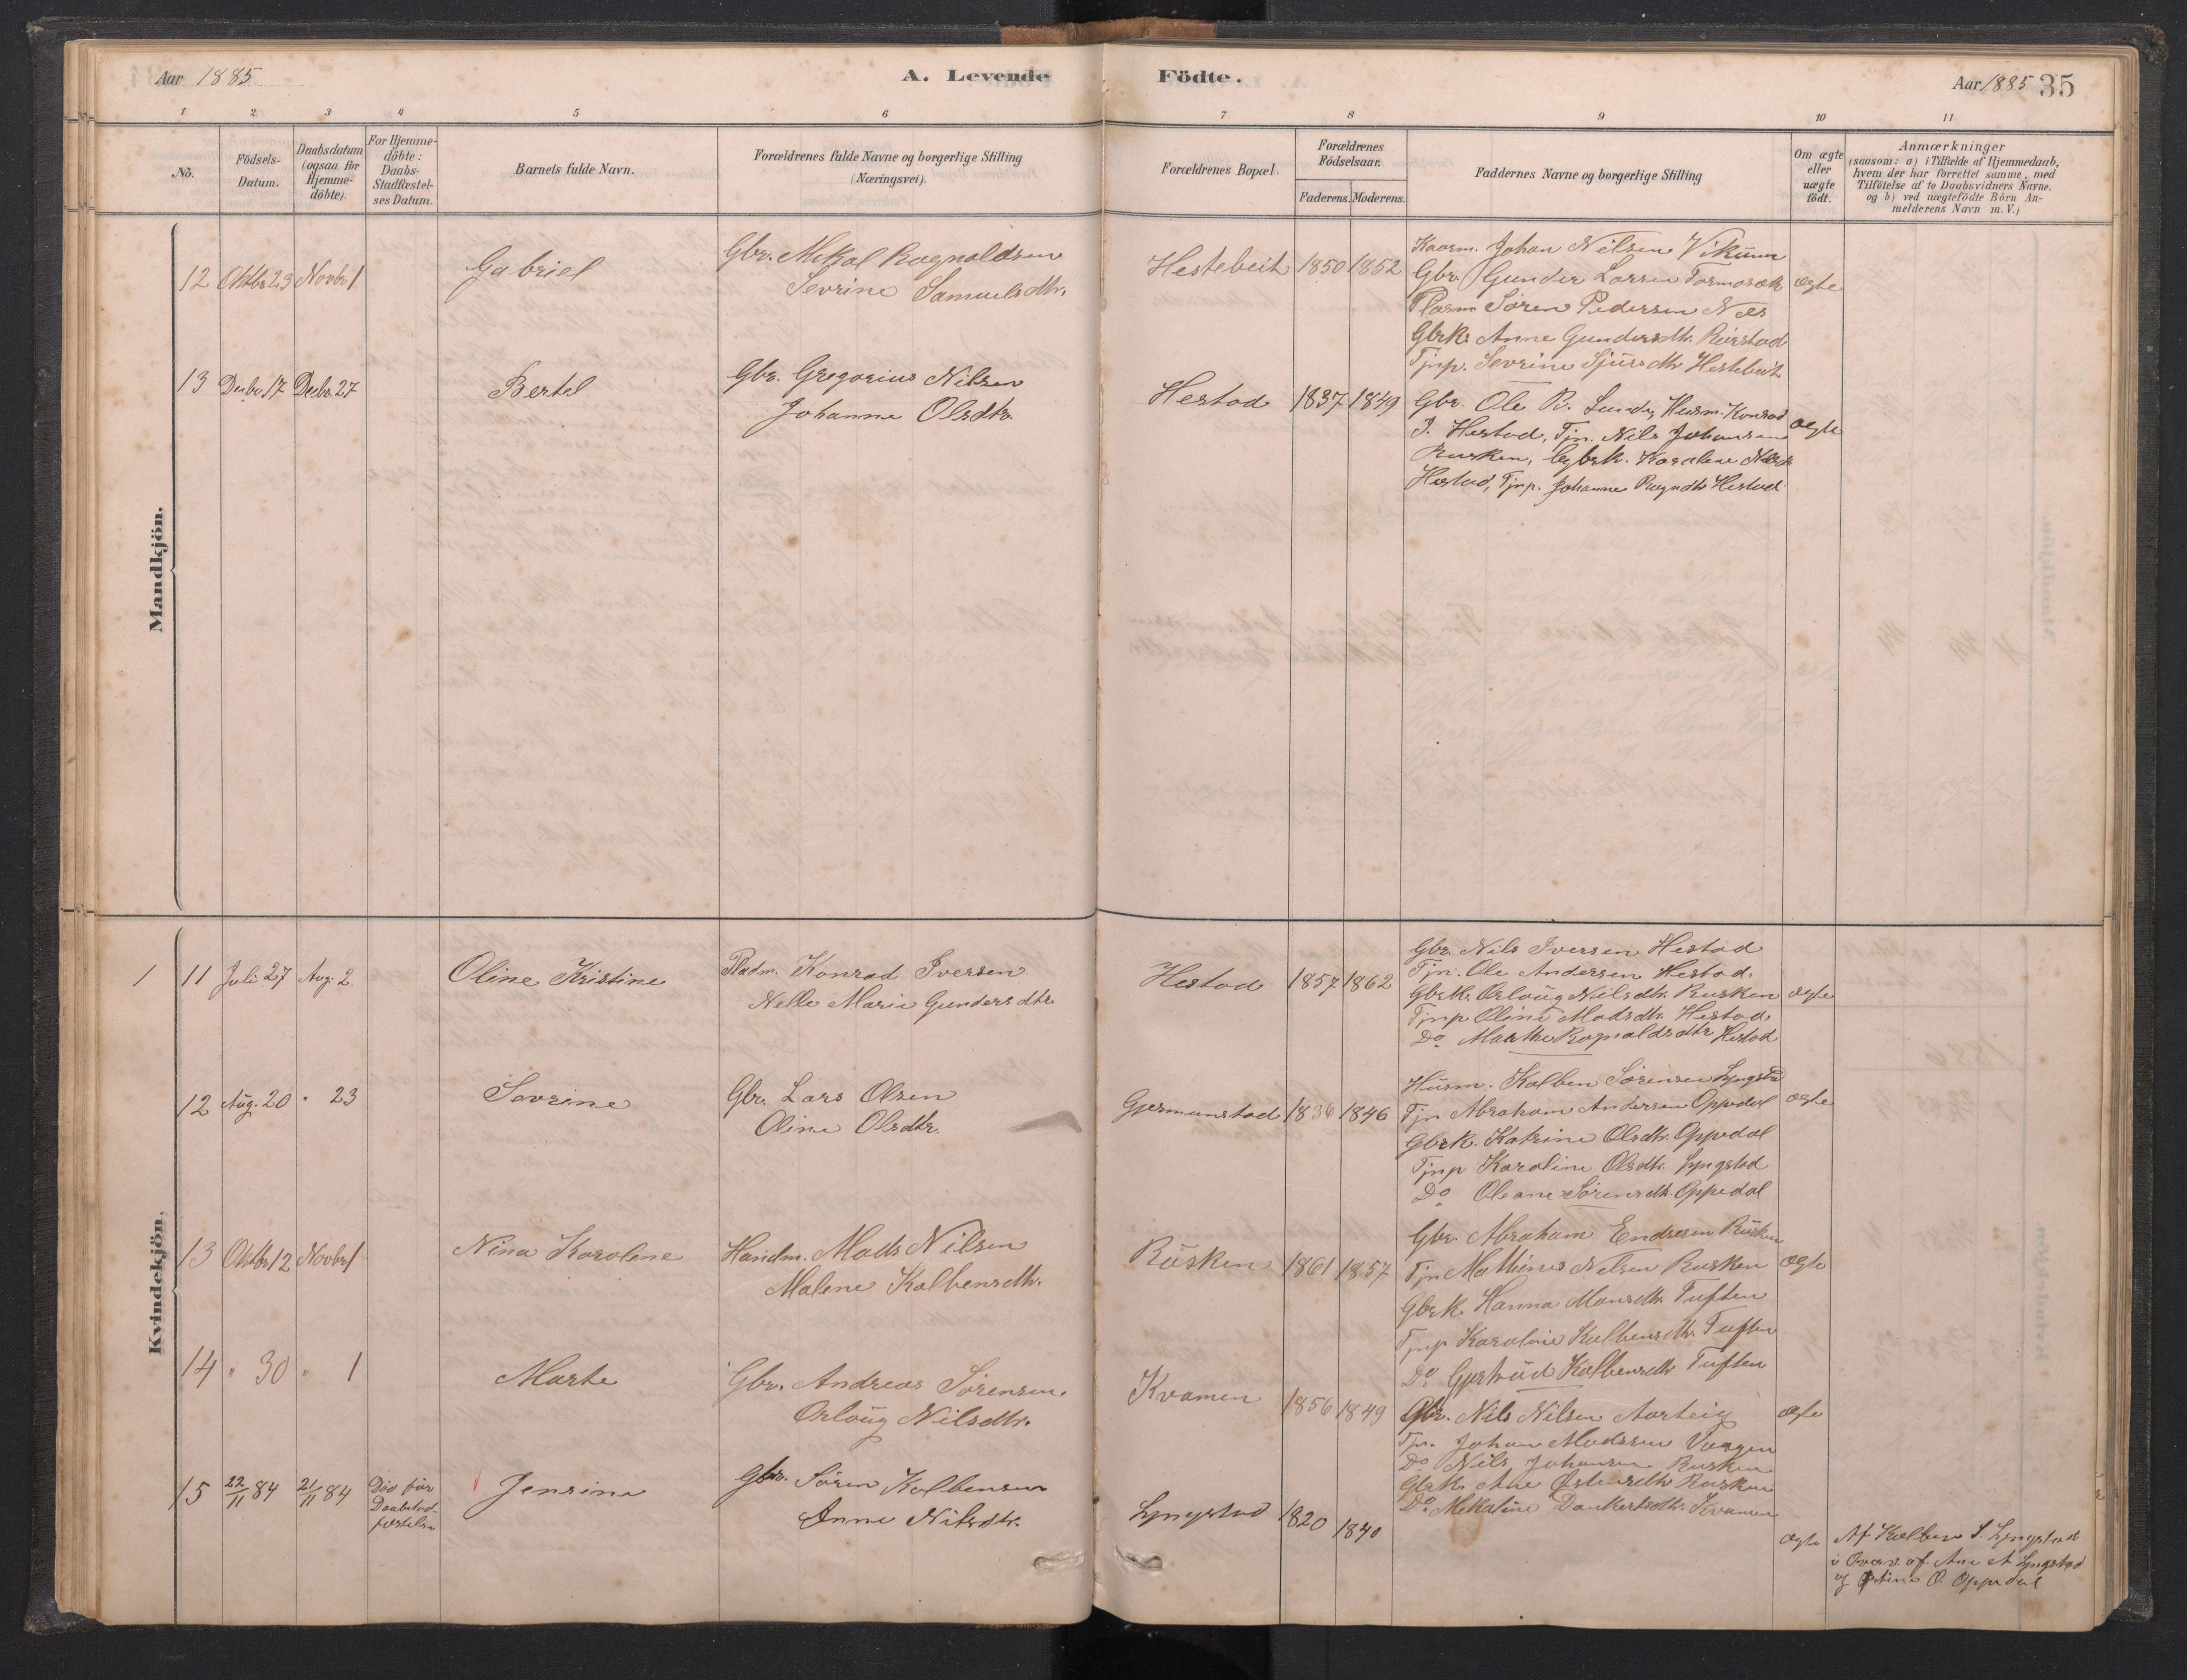 Aar 1885
A. Levende Födte.
Aar 1885 35
1 2 3 4 5 6 7 8 9 10 11
No.
Födsels-Datum.
Daabsdatum (ogsaa for Hjemme-döbte).
For Hjemme-döbte: Daabs-Stadfæstel-ses Datum.
Barnets fulde Navn.
Forældrenes fulde Navne og borgerlige Stilling (Næringsvei).
Forældrenes Bopæl.
Forældrenes Födselsaar.
Faderens. Moderens.
Faddernes Navne og borgerlige Stilling
Om ægte eller uægte födt.
Anmærkninger
(saasom: a) i Tilfælde af Hjemmedaab, hvem der har forrettet samme, med Tilföielse af to Daabsvidners Navne, og b) ved uægtefödte Börn An-melderens Navn m. V.)
Mandkjön.
12 Oktbr 23 Novbr 1 Gabriel
Gbr. Mikal Ragnaldsen
Sevrine Samuelsdtr.
Hestebeit 1850 1852
Kaarm. Johan Nilsen Vikum
Gbr. Gunder Larsen ægte
Søren Pedersen Nes
Gbrk. Anne Gundersdtr.
Tjnp. Sevrine Sjursdtr Hestebeit
13 Decbr. 17 Decbr. 27 Bertel
Gbr. Gregorius Nilsen
Johanne Olsdtr.
Hestad 1837 1849
Gbr. Ole R. Lunde, Husm. Konrad
I. Hestad, Tjn. Nils Johansen ægte
Rusken, Gbrk. Karolene
Hestad, Tjnp. Johanne Ragndtr Hestad
Kvindekjön.
1 11 Juli 27 Aug. 2 Oline Kristine
Pladm. Konrad Iversen
Nelle Marie Gundersdtr
Hestad 1857 1862
Gbr. Nils Iversen Hestad
Tjn. Ole Andersen Hestad.
Gbrk. Orloug Nilsdtr. Rusken ægte
Tjnp Oline Madsdtr. Hestad.
Do Marthe Ragnaldsdtr Hestad
12 Aug. 20 " 23 Sevrine
Gbr. Lars Olsen
Oline Olsdtr.
Gjermunstad 1836 1846
Husm. Kolben Sørensen Lyngstad
Tjn Abraham Andersen Oppedal ægte
Gbrk. Katrine Olsdtr. Oppedal
Tjnp Karoline Olsdtr. Lyngstad
Do Oleane Sørensdtr. Oppedal
13 Oktbr 12 Novbr 1 Nina Karolene
Handm. Mads Nilsen
Malene Kolbensdtr.
Rusken 1861 1857
Gbr. Abraham Endresen Rusken
Tjn Mathines Nilsen Rusken ægte
Gbrk. Hanna Monsdtr. Tuften
Tjnp Karoline Kolbensdtr. Tuften
Do Gjertrud Kolbensdtr Tuften
14 " 30 " 1 Marte
Gbr. Andreas Sørensen.
Orloug Nilsdtr.
Kvamen 1856 1849
Gbr. Nils Nilsen ægte
Tjn. Johan Madssen Vaagen
Do Nils Johansen Rusken
Gbrk. Ane Rusken
Do Mekaline Dankertsdtr. Kvamen
15 22/11 84 21/11 84 Død før Daabstad-fæstelsen Jensine
Gbr. Søren Kolbensen
Anne Nilsdtr.
Lyngstad 1820 1840
ægte
Af Kolben S. Lyngstad
i Overv. af Ane A Lyngstad
og O. Oppedal